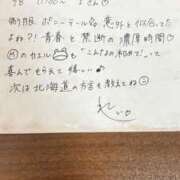 9日 11:00〜 Yさん
制服 ポニーテール 意外と似合ってた
よね?! 青春と禁断の濃厚時間♡
のカエル も「こんなの初めて!」って
喜んでもらえて嬉しい♡
次は北海道の方言も教えてね☺